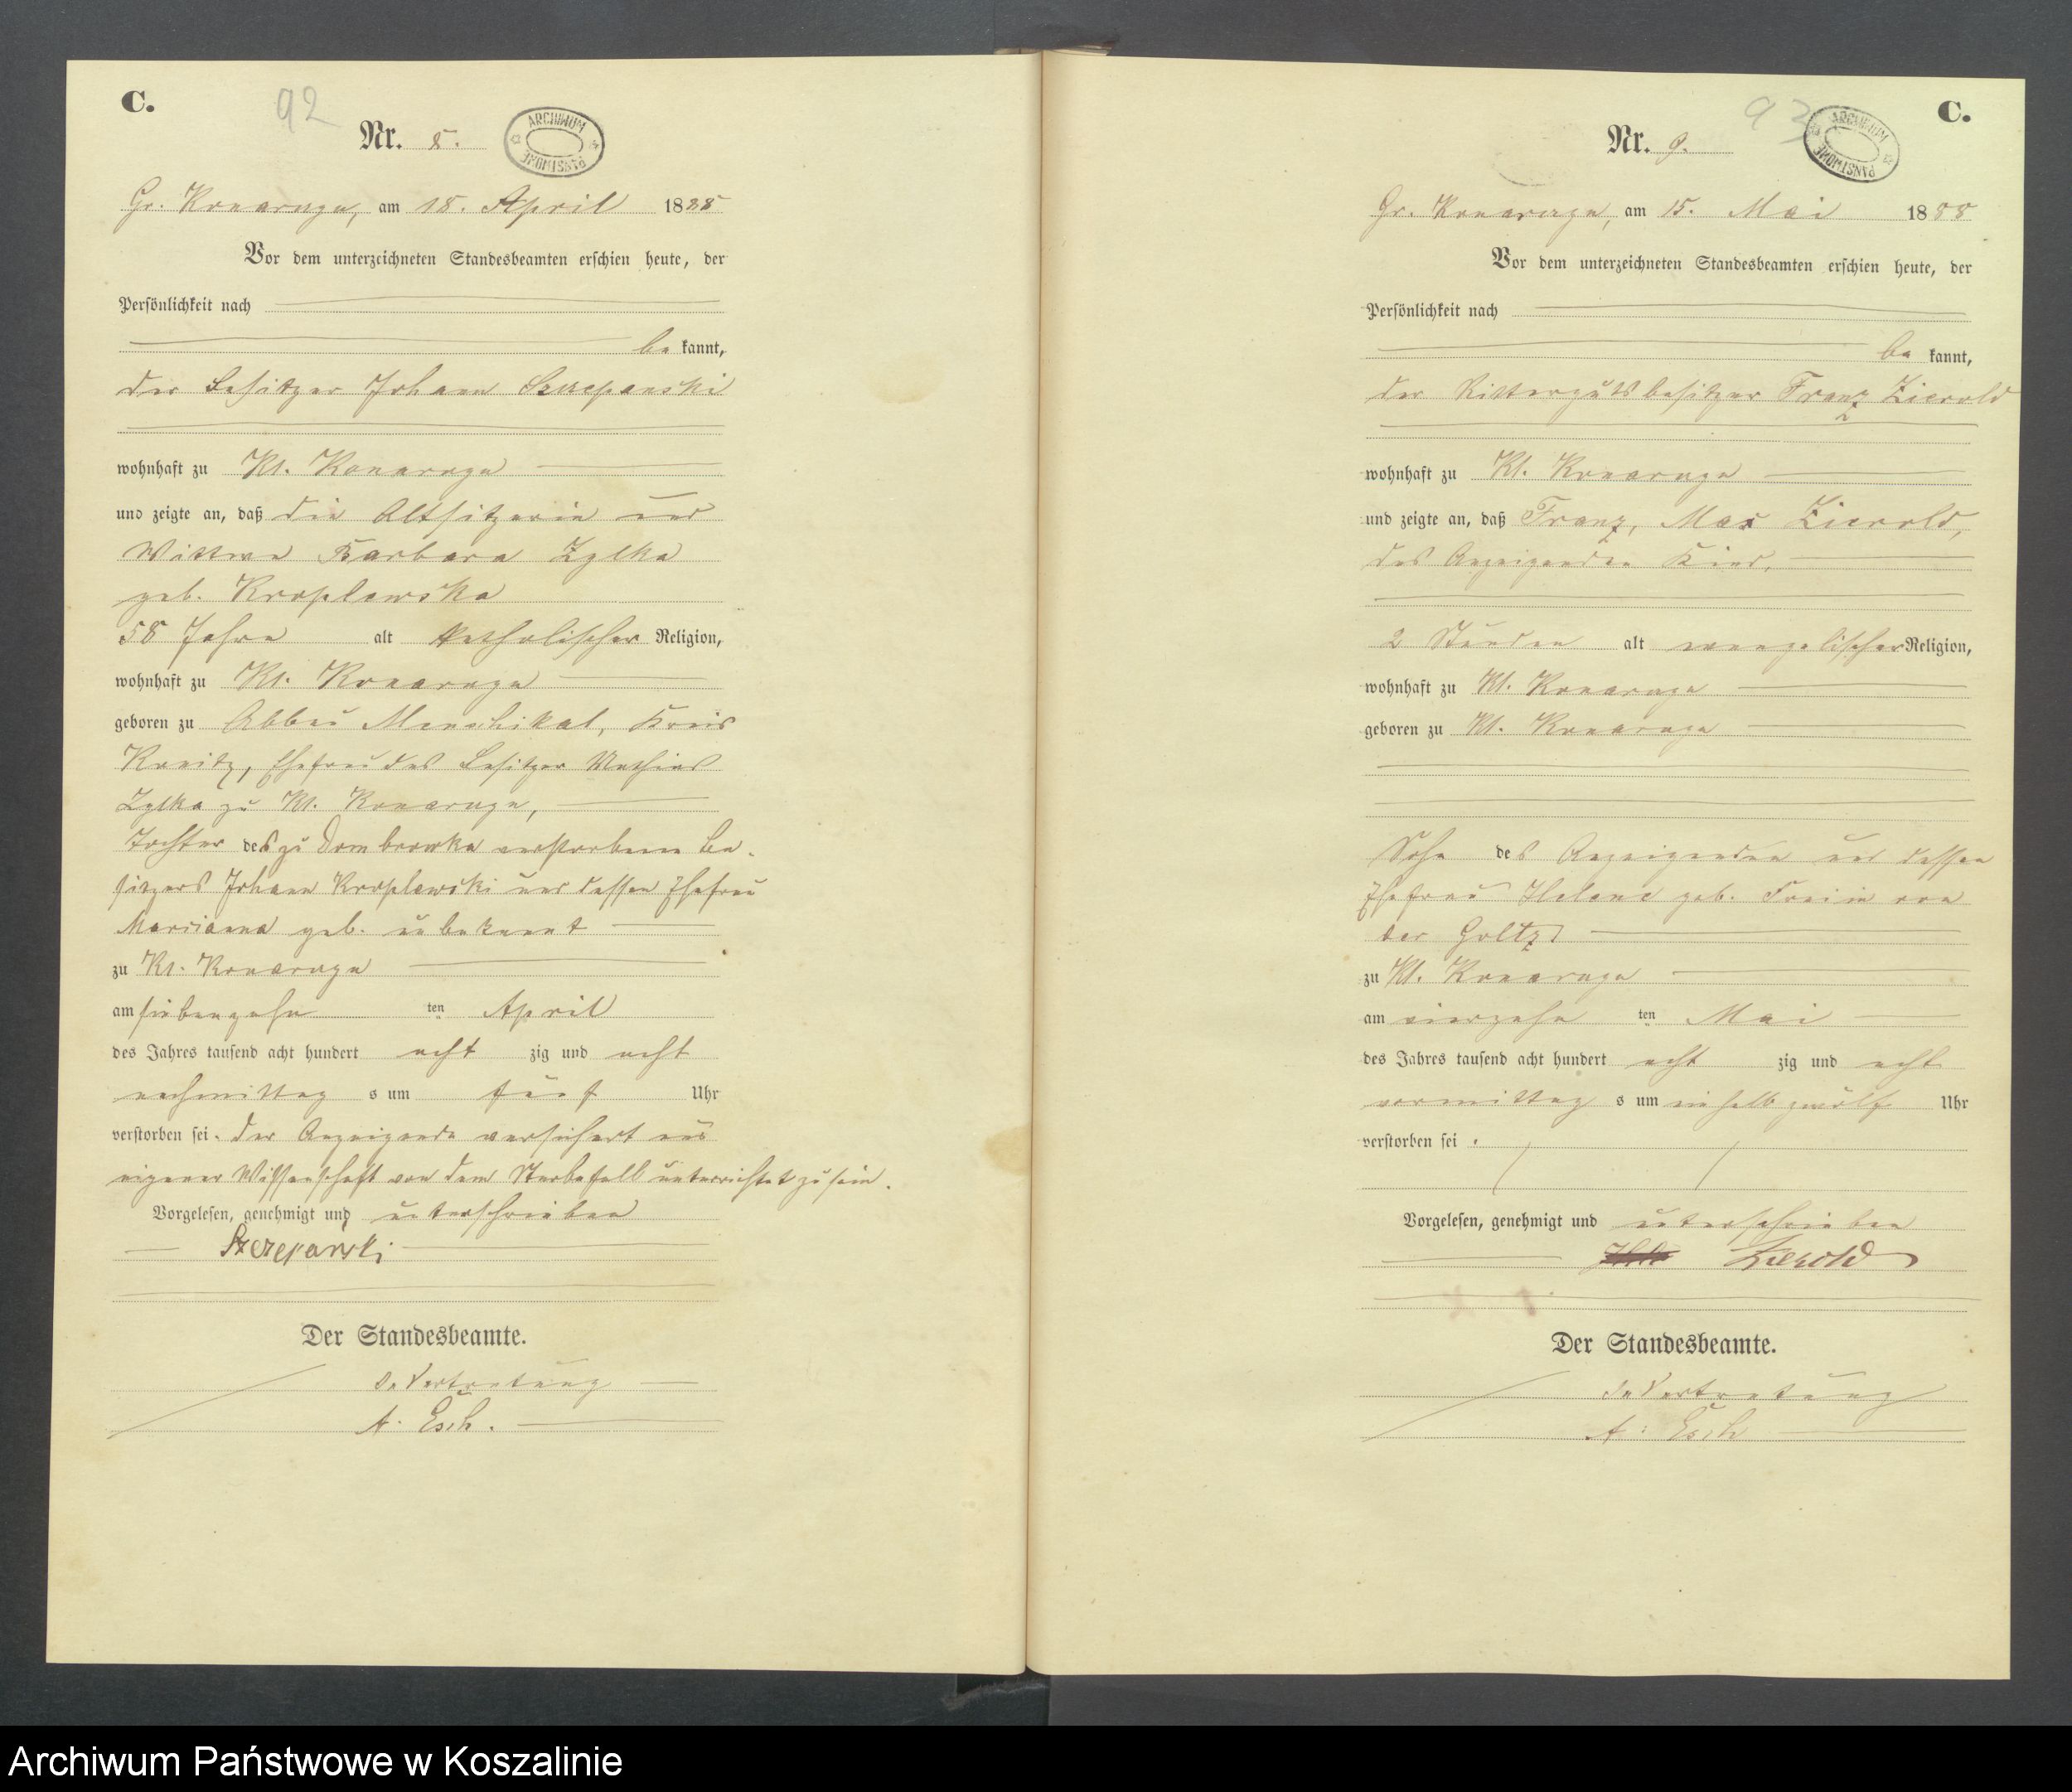 C.
92
Nr. 8.
ARCHIWUM PAŃSTWOWE
Gr. Konarczyn, am 18. April 1888
Vor dem unterzeichneten Standesbeamten erschien heute, der
Persönlichkeit nach
be kannt,
der Besitzer Johann Szczepanski
wohnhaft zu Kl. Konarczyn
und zeigte an, daß die Altsitzerin und
Wittwe Barbara Zylka
geb. Kroplewska
58 Jahre alt katholischer Religion,
wohnhaft zu Kl. Konarczyn
geboren zu Abbau Menschikal, Kreis
Konitz, Ehefrau des Besitzer Mathias
Zylka zu Kl. Konarczyn,
Tochter des zu Dombrowka verstorbenen Be-
sitzers Johann Kroplewski und dessen Ehefrau
Marianna geb. unbekannt
zu Kl. Konarczyn
am siebenzehn ten April
des Jahres tausend acht hundert acht zig und acht
nachmittag s um fünf Uhr
verstorben sei. Der Anzeigende versichert aus
eigener Wissenschaft von dem Sterbefall unterrichtet zu sein.
Vorgelesen, genehmigt und unterschrieben
Szczepański
Der Standesbeamte.
In Vertretung
A. Esch.
C.
93
Nr. 9.
ARCHIWUM PAŃSTWOWE
Gr. Konarczyn, am 15. Mai 1888
Vor dem unterzeichneten Standesbeamten erschien heute, der
Persönlichkeit nach
be kannt,
der Rittergutsbesitzer Franz Zierold
wohnhaft zu Kl. Konarczyn
und zeigte an, daß Franz, Max Zierold,
des Anzeigenden Kind,
2 Stunden alt evangelischer Religion,
wohnhaft zu Kl. Konarczyn
geboren zu Kl. Konarczyn
Sohn des Anzeigenden und dessen
Ehefrau Helene geb. Freiin von
der Goltz
zu Kl. Konarczyn
am vierzehn ten Mai
des Jahres tausend acht hundert acht zig und acht
vormittag s um einhalb zwölf Uhr
verstorben sei.
Vorgelesen, genehmigt und unterschrieben
Zierold
Der Standesbeamte.
In Vertretung
A. Esch
Archiwum Państwowe w Koszalinie